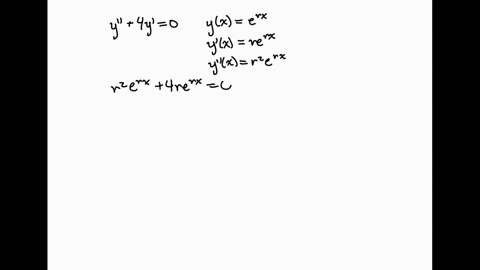 y'' + 4y' = 0 y(x) = e^{rx}
y'(x) = re^{rx}
y''(x) = r²e^{rx}
r²e^{rx} + 4re^{rx} = C